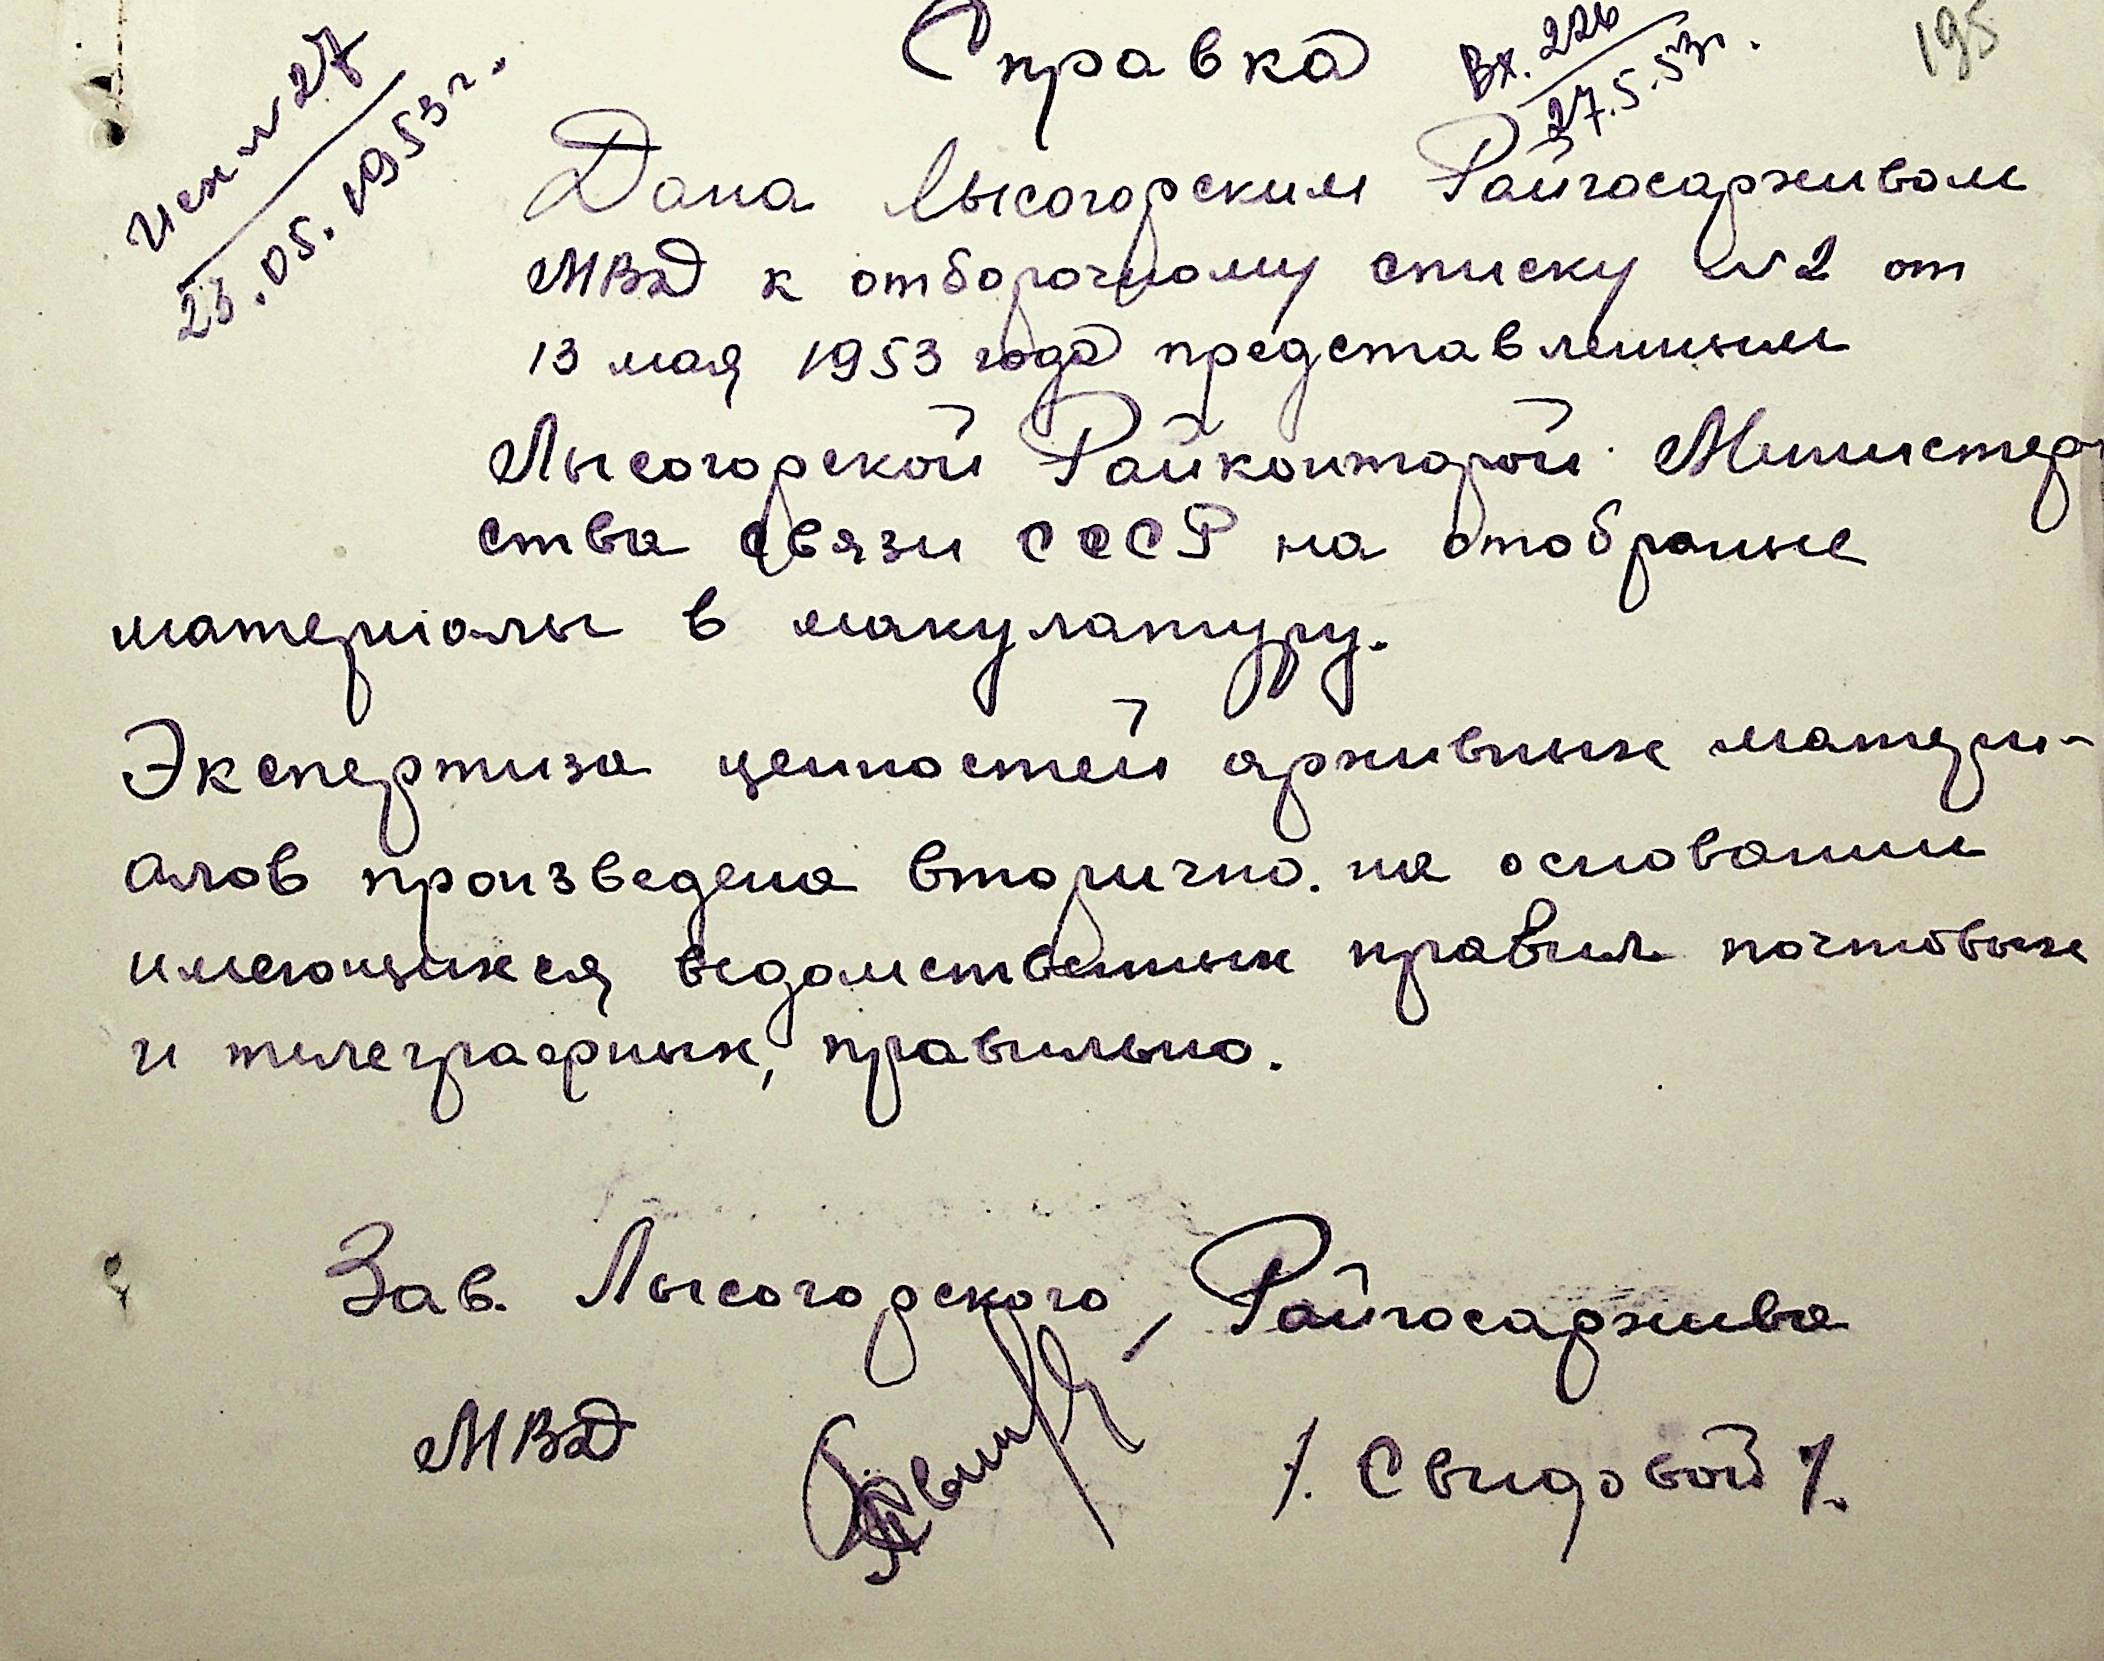 Справка
Исх № 27
23.05.1953 г.
Вх. 226
27.5.53 г.
195
Дана Лысогорским Райгосархивом
МВД к отборочному списку № 2 от
13 мая 1953 года представленным
Лысогорской Райконторой Министер-
ства связи СССР на отобраные
материалы в макулатуру.
Экспертиза ценностей архивных матери-
алов произведена вторично. на основании
имеющихся ведомственных правил почтовых
и телеграфных, правильно.
Зав. Лысогорского Райгосархива
МВД
/. Свидовой /.